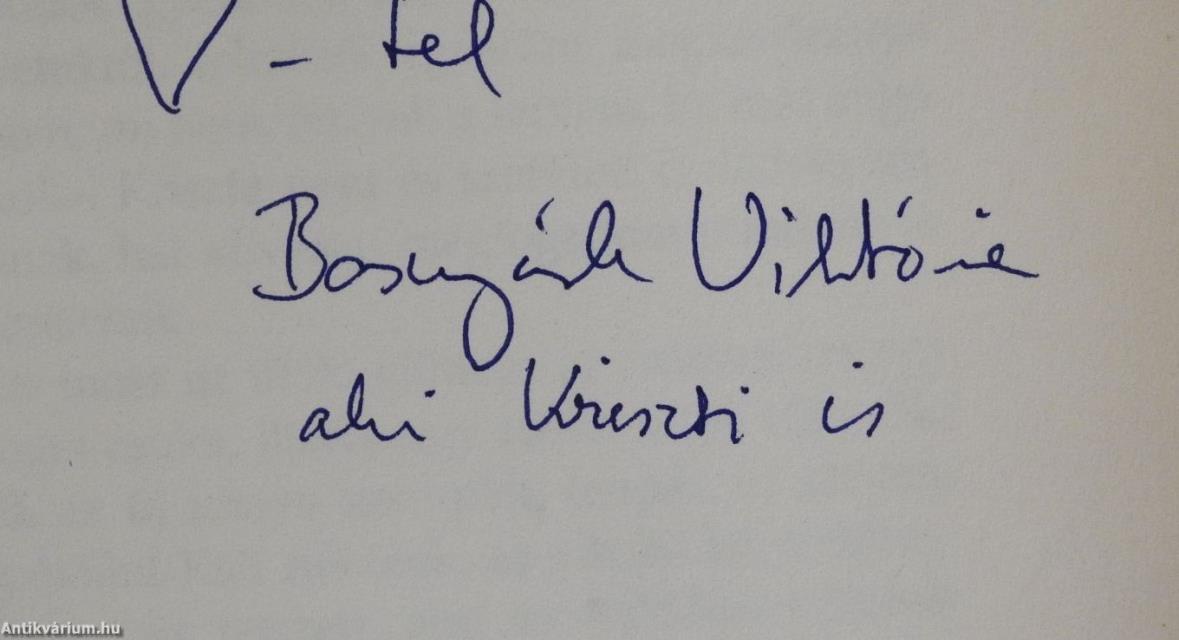 ♡ - tel
Bosnyák Viktória
aki Kriszti is
Antikvárium.hu